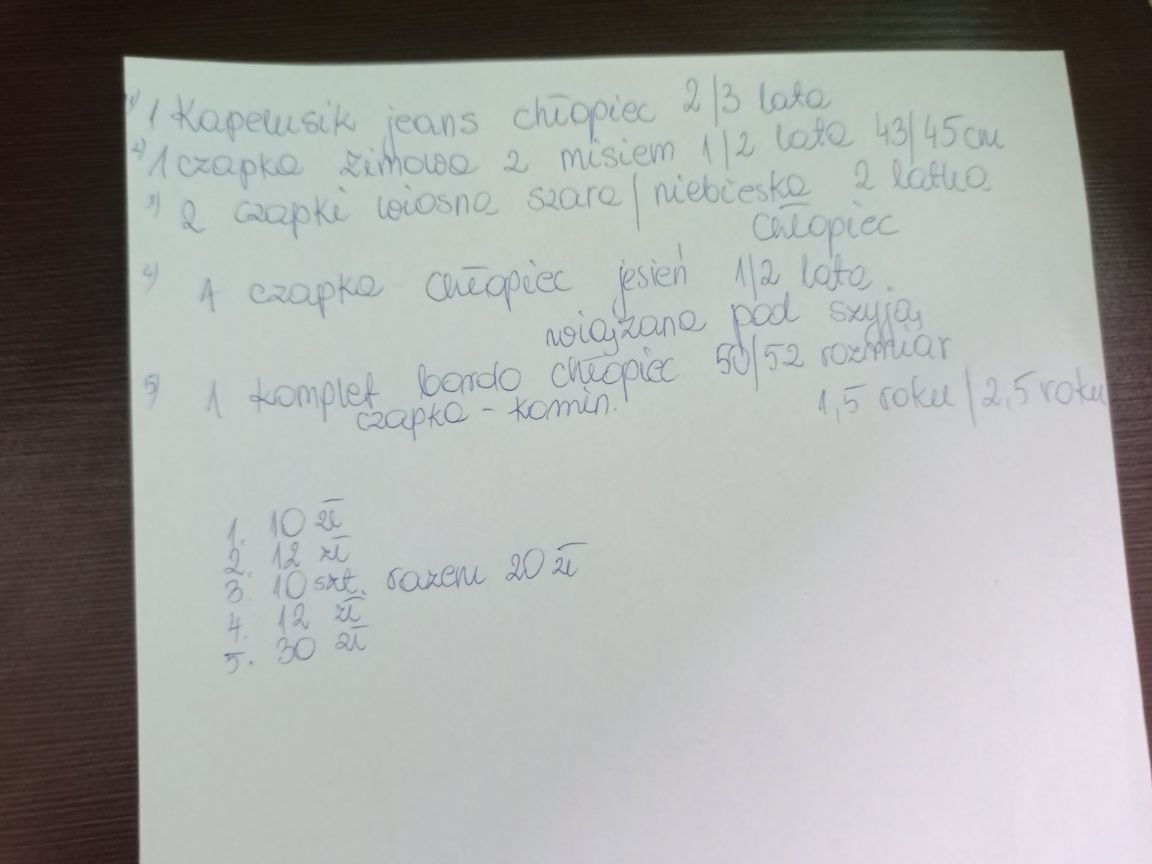 1) 1 Kapelusik jeans chłopiec 2/3 lata
2) 1 czapka zimowa z misiem 1/2 lata 43/45 cm
3) 2 czapki wiosna szara/niebieska 2 latka
chłopiec
4) 1 czapka chłopiec jesień 1/2 lata.
wiązana pod szyją
5) 1 komplet bordo chłopiec 50/52 rozmiar
czapka - komin. 1,5 roku/2,5 roku
1. 10 zł
2. 12 zł
3. 10 szt. razem 20 zł
4. 12 zł
5. 30 zł